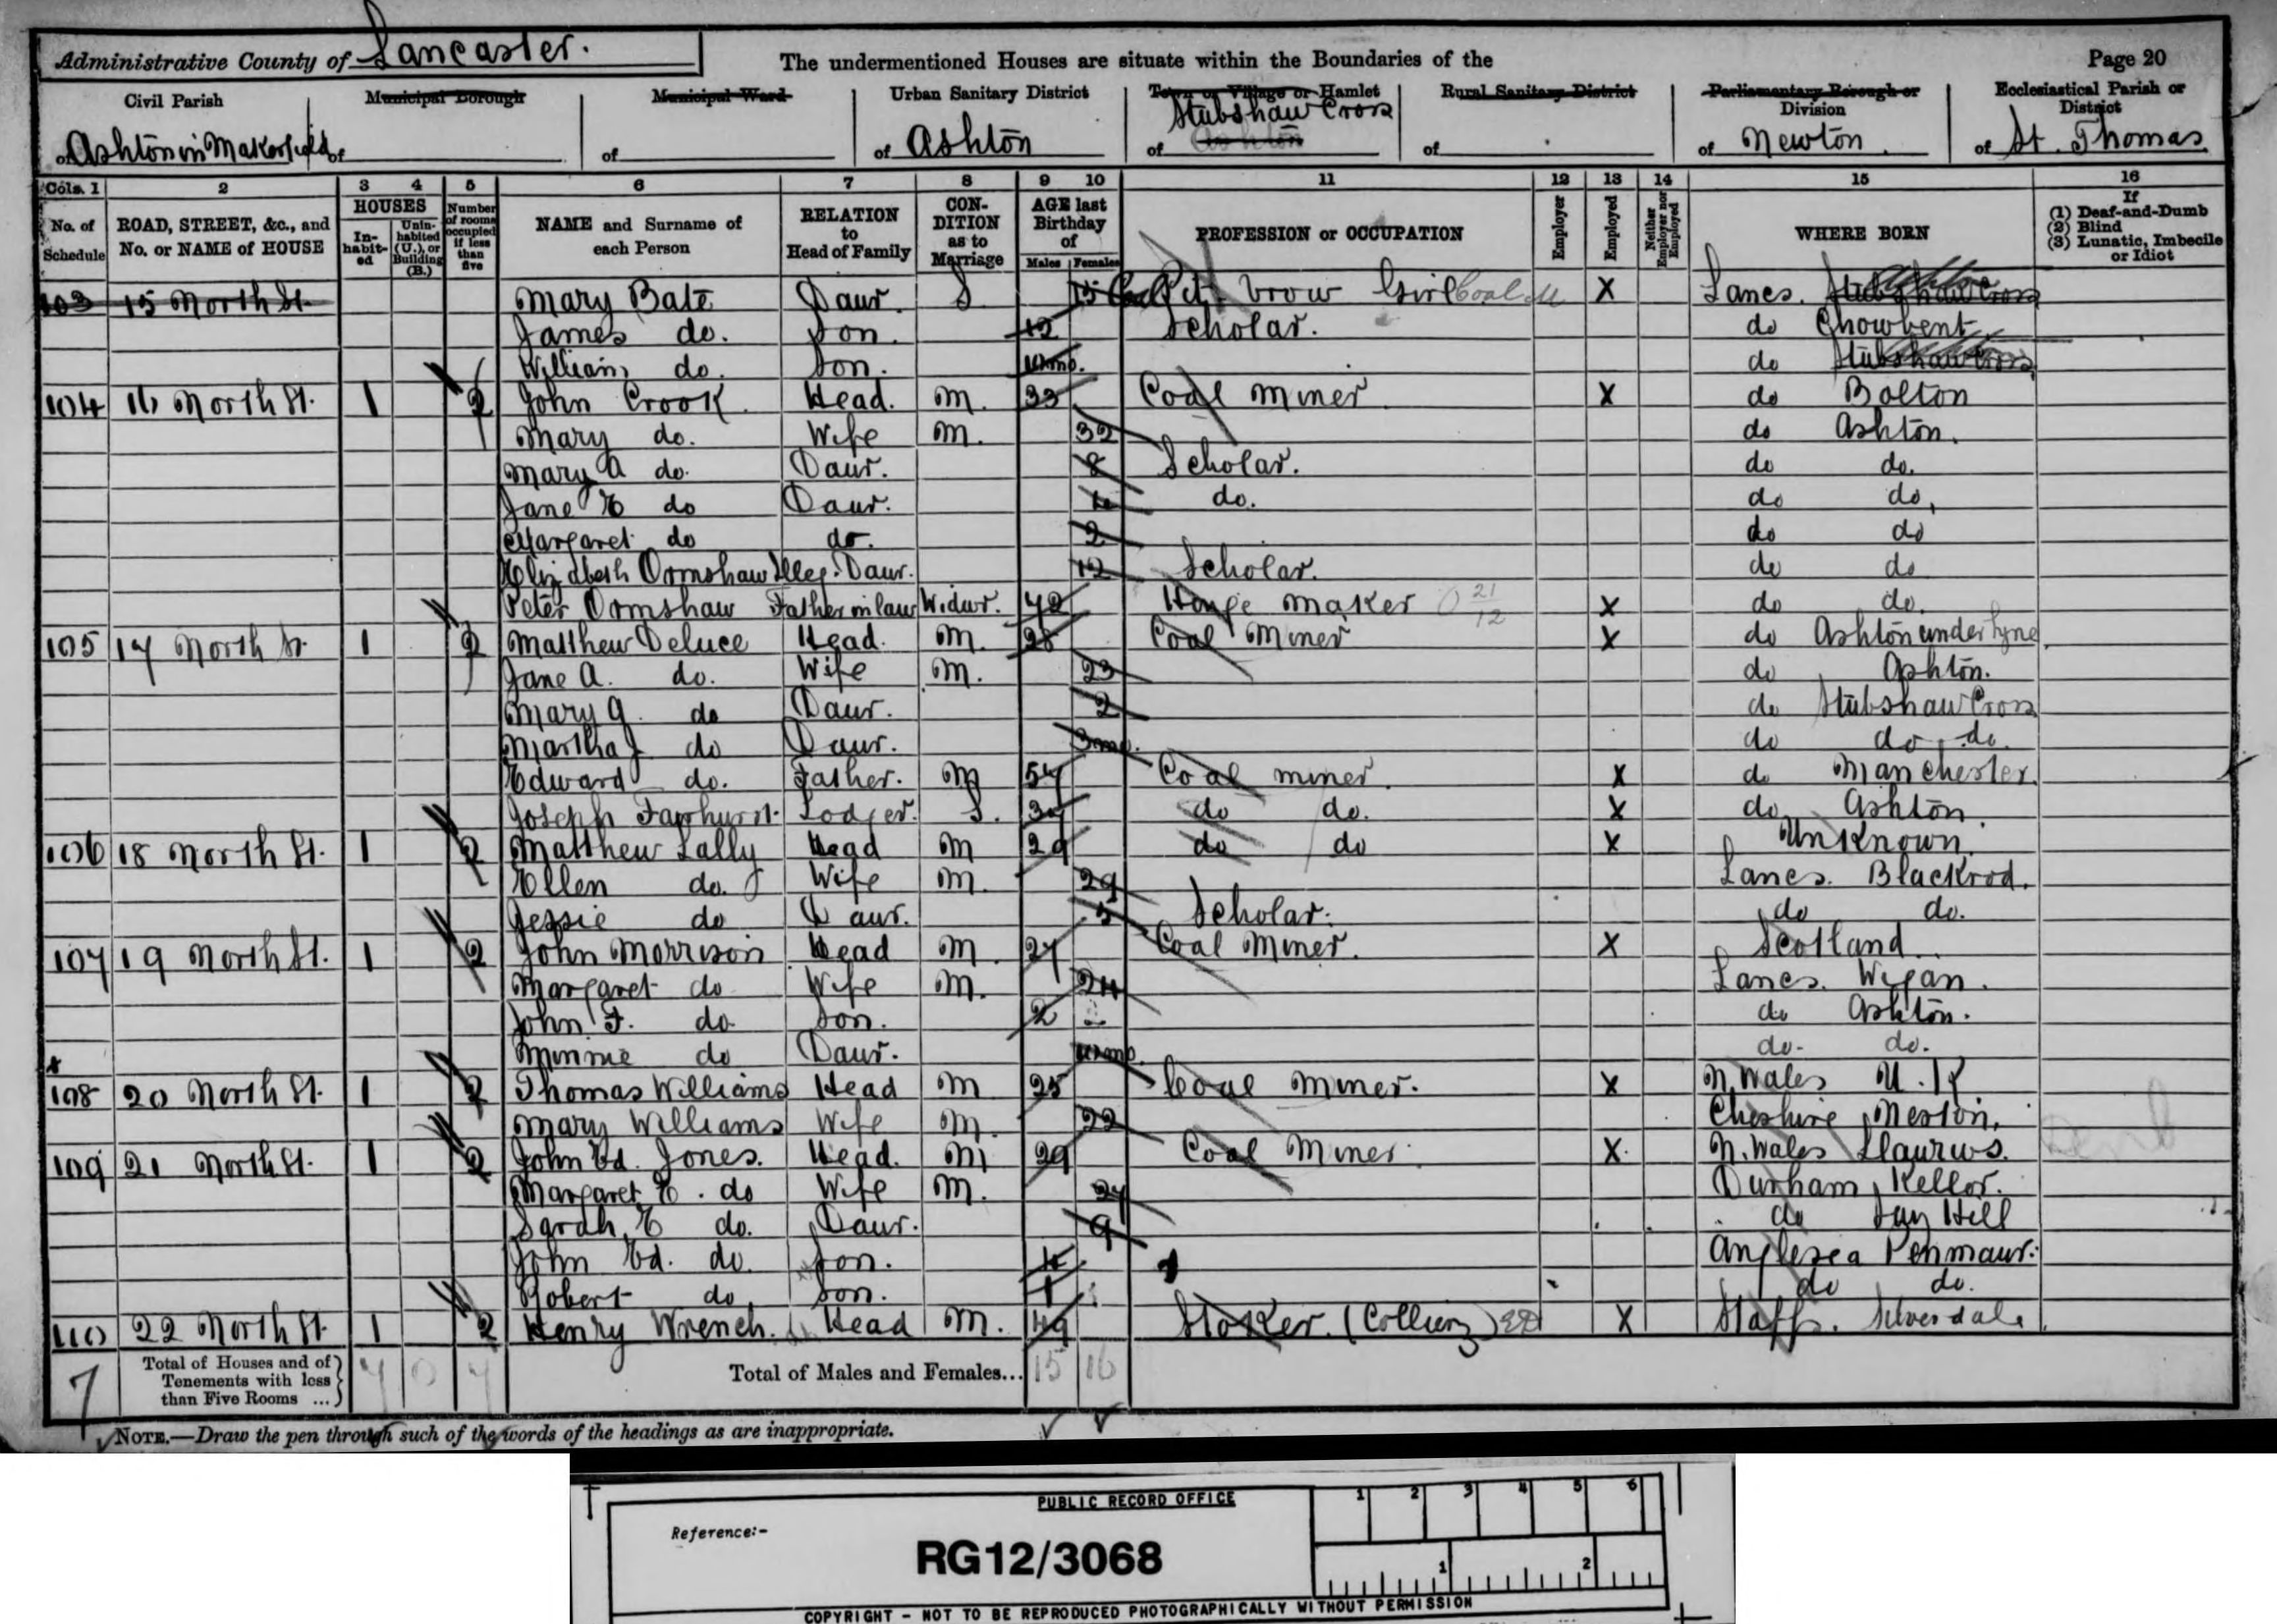 Administrative County of Lancaster.
The undermentioned Houses are situate within the Boundaries of the
Page 20
Civil Parish
of Ashton in Makerfield
Municipal Borough
of
Municipal Ward
of
Urban Sanitary District
of Ashton
Town or Village or Hamlet
Stubshaw Cross
of Ashton
Rural Sanitary District
of
Parliamentary Borough or
Division
of Newton
Ecclesiastical Parish or
District
of St. Thomas
Cols. 1 2 3 4 5 6 7 8 9 10 11 12 13 14 15 16
No. of Schedule
ROAD, STREET, &c., and No. or NAME of HOUSE
HOUSES
Inhabited
Uninhabited (U.), or Building (B.)
Number of rooms occupied if less than five
NAME and Surname of each Person
RELATION to Head of Family
CONDITION as to Marriage
AGE last Birthday of
Males Females
PROFESSION or OCCUPATION
Employer
Employed
Neither Employer nor Employed
WHERE BORN
If
(1) Deaf-and-Dumb
(2) Blind
(3) Lunatic, Imbecile or Idiot
103 15 North St. Mary Bate Daur. S 15 Pit brow Girl Coal M X Lancs. Stubshaw Cross
James do. Son. 12 Scholar. do Chowbent
William do. Son. 10 mo. do Stubshaw Cross
104 16 North St. 1 2 John Crook Head. M. 33 Coal Miner X do Bolton
Mary do. Wife M. 32 do Ashton.
Mary A do. Daur. 8 Scholar. do do.
Jane E do Daur. 4 do. do do,
Margaret do do. 2 do do
Elizabeth Ormshaw Illeg. Daur. 12 Scholar. do do
Peter Ormshaw Father in law Widwr. 72 Hinge Maker 21/12 X do do.
105 17 North St. 1 2 Matthew Deluce Head. M. 28 Coal Miner X do Ashton under lyne
Jane A. do. Wife M. 23 do Ashton.
Mary A. do Daur. 2 do Stubshaw Cross
Martha J do Daur. 3 mo. do do do.
Edward do. Father. M 57 Coal miner. X do Manchester
Joseph Fairhurst. Lodger. S. 30 do do. X do Ashton.
106 18 North St. 1 2 Matthew Lally Head M 29 do do X Unknown.
Ellen do. Wife M. 29 Lancs. Blackrod.
Jessie do Daur. 5 Scholar. do do.
107 19 North St. 1 2 John Morrison Head M 27 Coal Miner. X Scotland
Margaret do Wife M. 24 Lancs. Wigan.
John F. do Son. 2 do Ashton.
Minnie do Daur. 10 mo. do. do.
108 20 North St. 1 2 Thomas Williams Head M 25 Coal Miner. X N. Wales N.K
Mary Williams Wife M. 22 Cheshire Neston.
109 21 North St. 1 2 John Ed. Jones. Head. M 29 Coal Miner X. N. Wales Llanrws.
Margaret E. do Wife M. 27 Durham Kellor.
Sarah E do. Daur. 9 do Hill
John Ed. do. Son. 4 Anglesea Penmaur.
Robert do Son. 1 do do.
110 22 North St. 1 2 Henry Wrench. Head M. 49 Stoker. (Colliery) X Staffs. Silverdale
7 Total of Houses and of Tenements with less than Five Rooms ... 7 0 7 Total of Males and Females... 15 16
NOTE.—Draw the pen through such of the words of the headings as are inappropriate.
PUBLIC RECORD OFFICE
1 2 3 4 5 6
Reference:-
RG12/3068
1 2
COPYRIGHT - NOT TO BE REPRODUCED PHOTOGRAPHICALLY WITHOUT PERMISSION